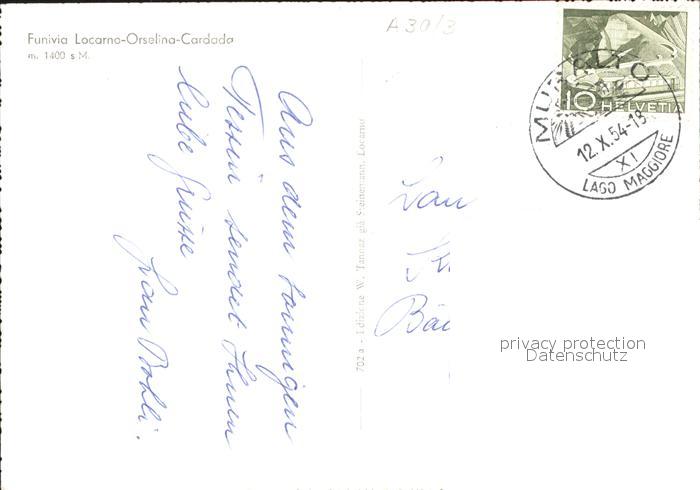 Funivia Locarno-Orselina-Cardada
m. 1400 s M.
A30/3
Aus dem sonnigen
Tessin sendet Ihnen
liebe Grüsse
702 a - Edizione W. Tannaz già Steinemann, Locarno
Bäc
10 HELVETIA
MURALTO
12.X.54-18
XI
LAGO MAGGIORE
privacy protection
Datenschutz